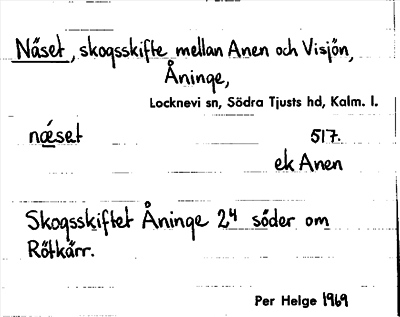 Näset, skogsskifte mellan Anen och Visjön,
Åninge,
Locknevi sn, Södra Tjusts hd, Kalm. l.
næ̀set 517.
ek Anen
Skogsskiftet Åninge 2⁴ söder om
Rötkärr.
Per Helge 1969